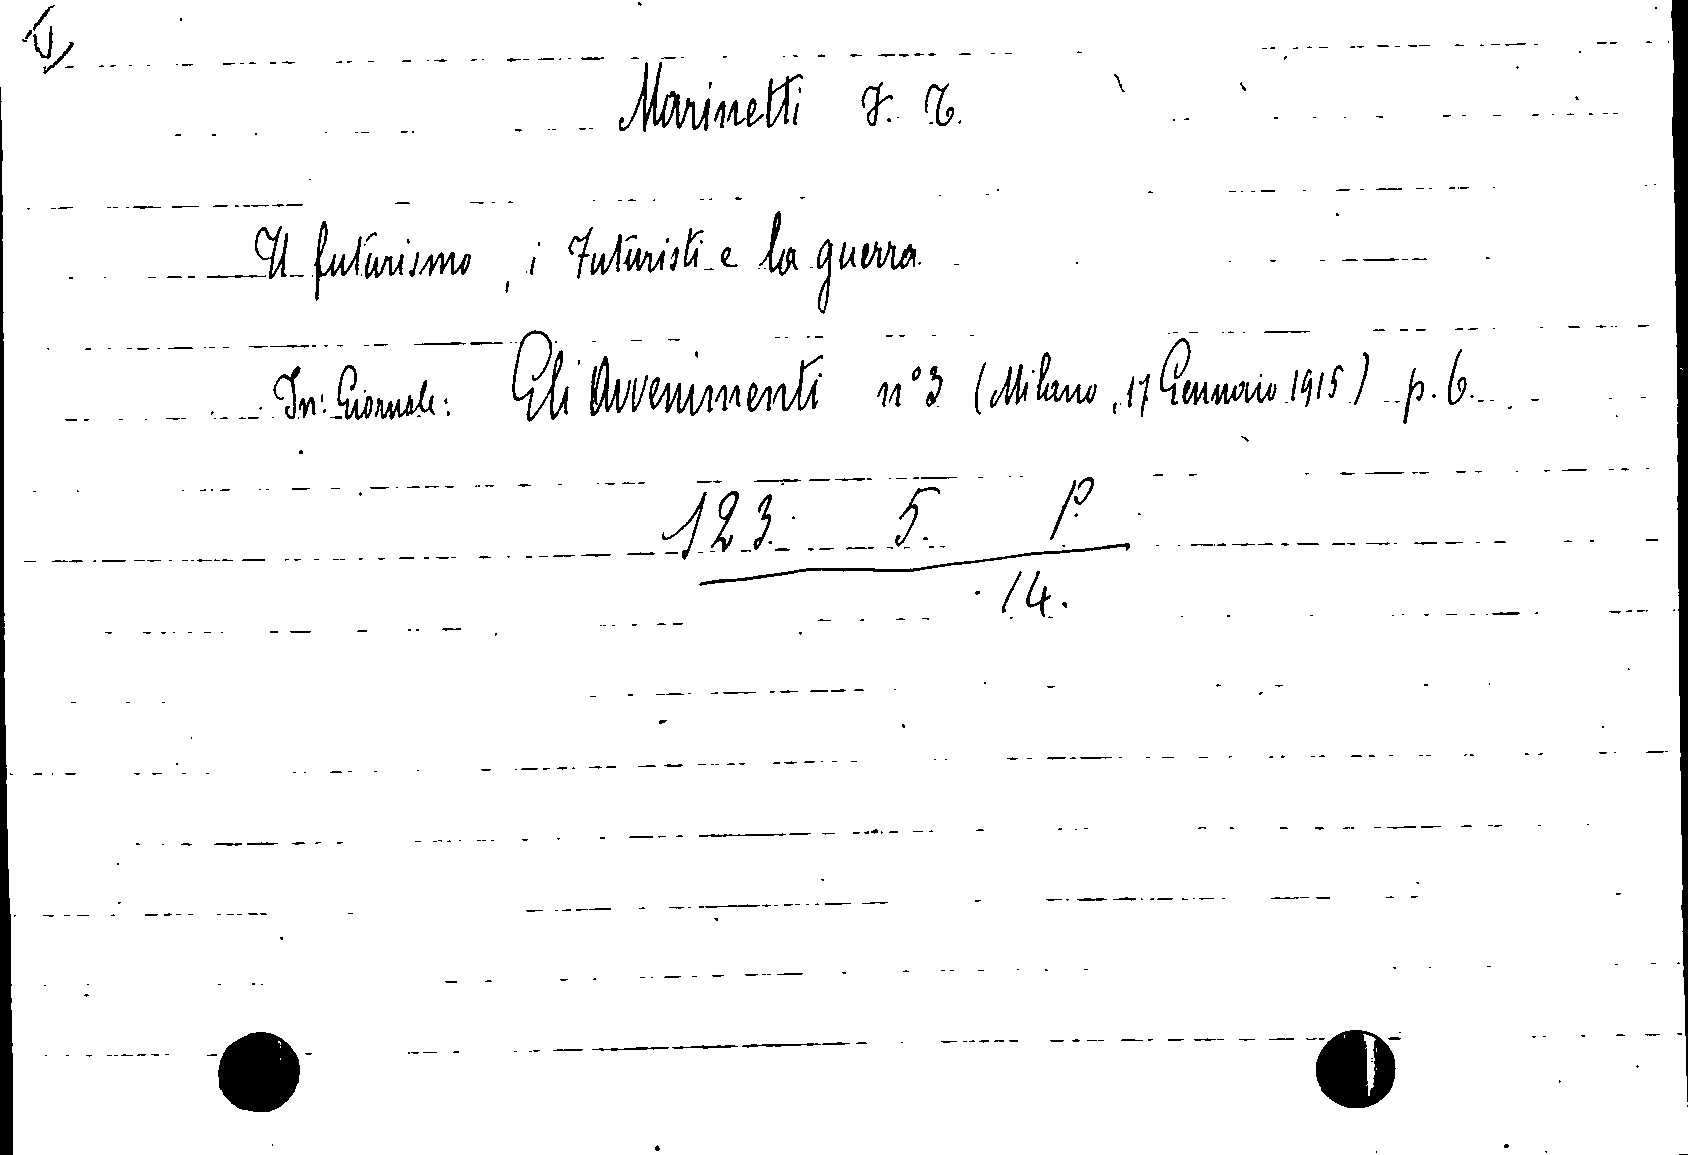 Marinetti F. T.
Il futurismo, i Futuristi e la guerra
In: Giornale: Gli Avvenimenti n° 3 (Milano, 17 Gennaio 1915) p. 6.
123. 5. P.
14.